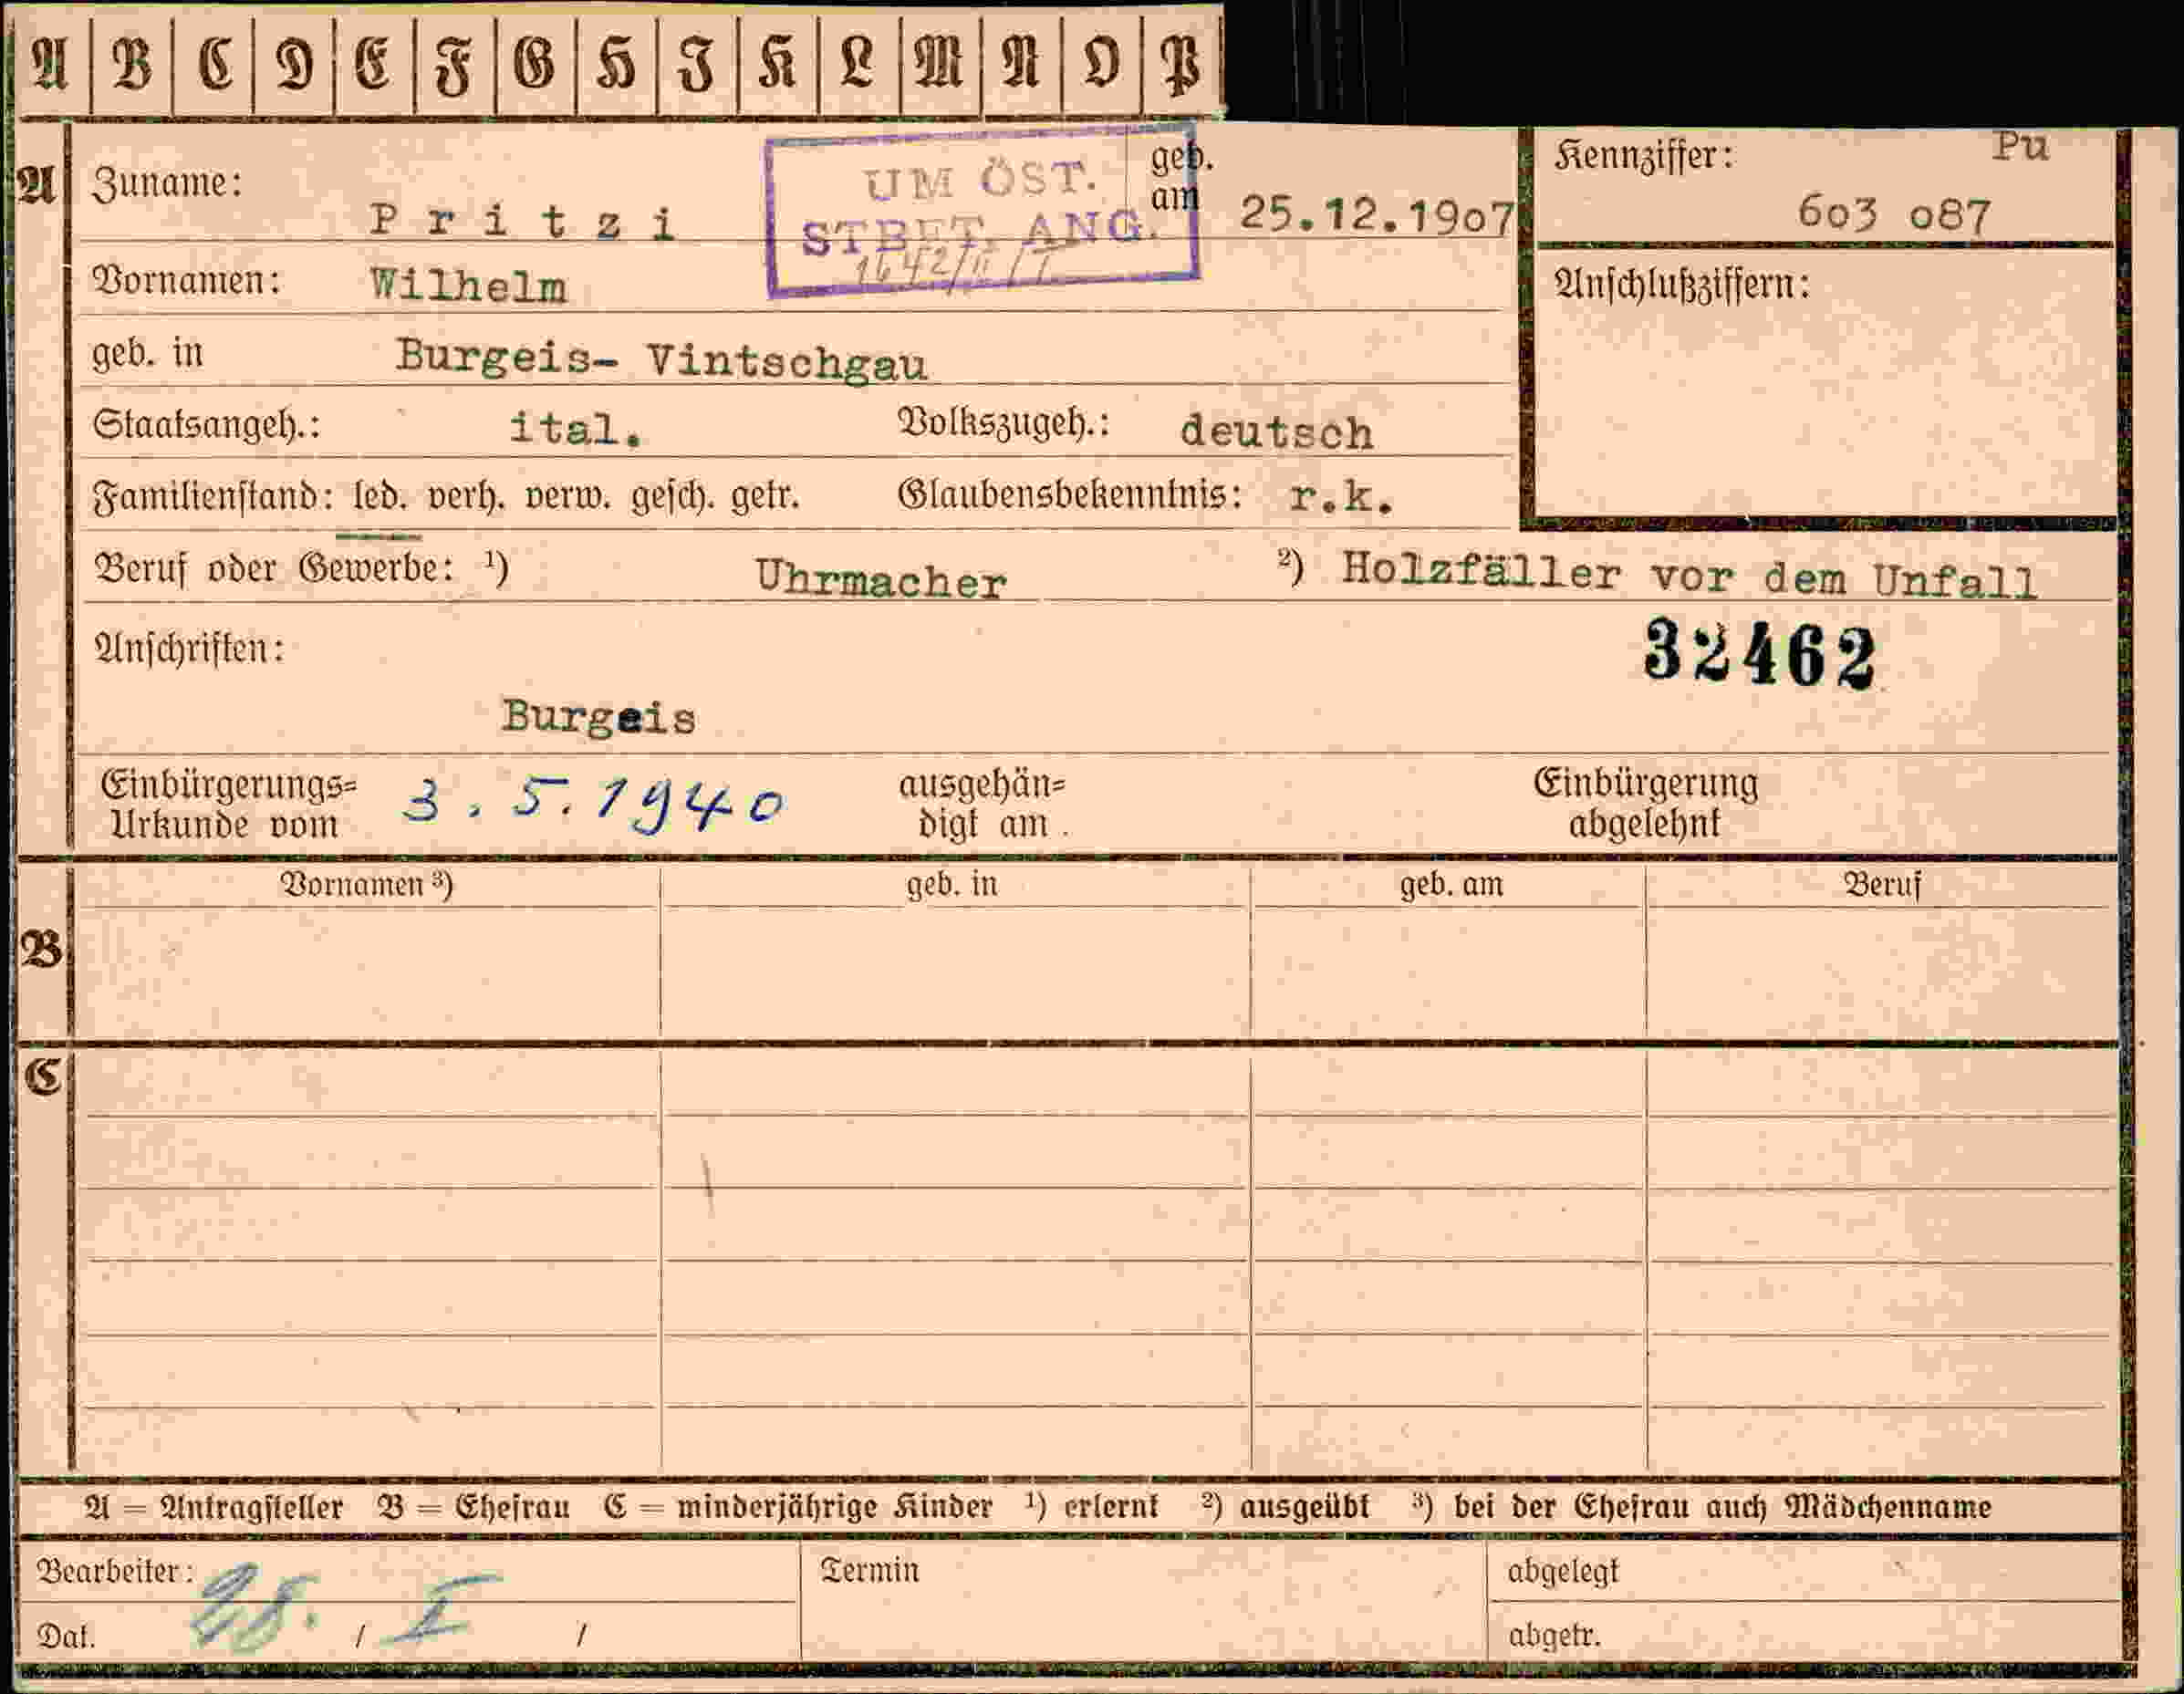 A B C D E F G H I K L M N O P
A Zuname: P r i t z i geb. am 25.12.19o7 Kennziffer: Pu
6o3 o87
UM ÖST.
STBET. ANG.
1642/II/I
Vornamen: Wilhelm Anschlußziffern:
geb. in Burgeis- Vintschgau
Staatsangeh.: ital. Volkszugeh.: deutsch
Familienstand: led. verh. verw. gesch. getr. Glaubensbekenntnis: r.k.
Beruf oder Gewerbe: ¹) Uhrmacher ²) Holzfäller vor dem Unfall
Anschriften: 32462
Burgeis
Einbürgerungs= 3.5.1940 ausgehän= Einbürgerung
Urkunde vom digt am . abgelehnt
Vornamen ³) geb. in geb. am Beruf
B
C
A = Antragsteller B = Ehefrau C = minderjährige Kinder ¹) erlernt ²) ausgeübt ³) bei der Ehefrau auch Mädchenname
Bearbeiter: Termin abgelegt
Dat. / I / abgetr.